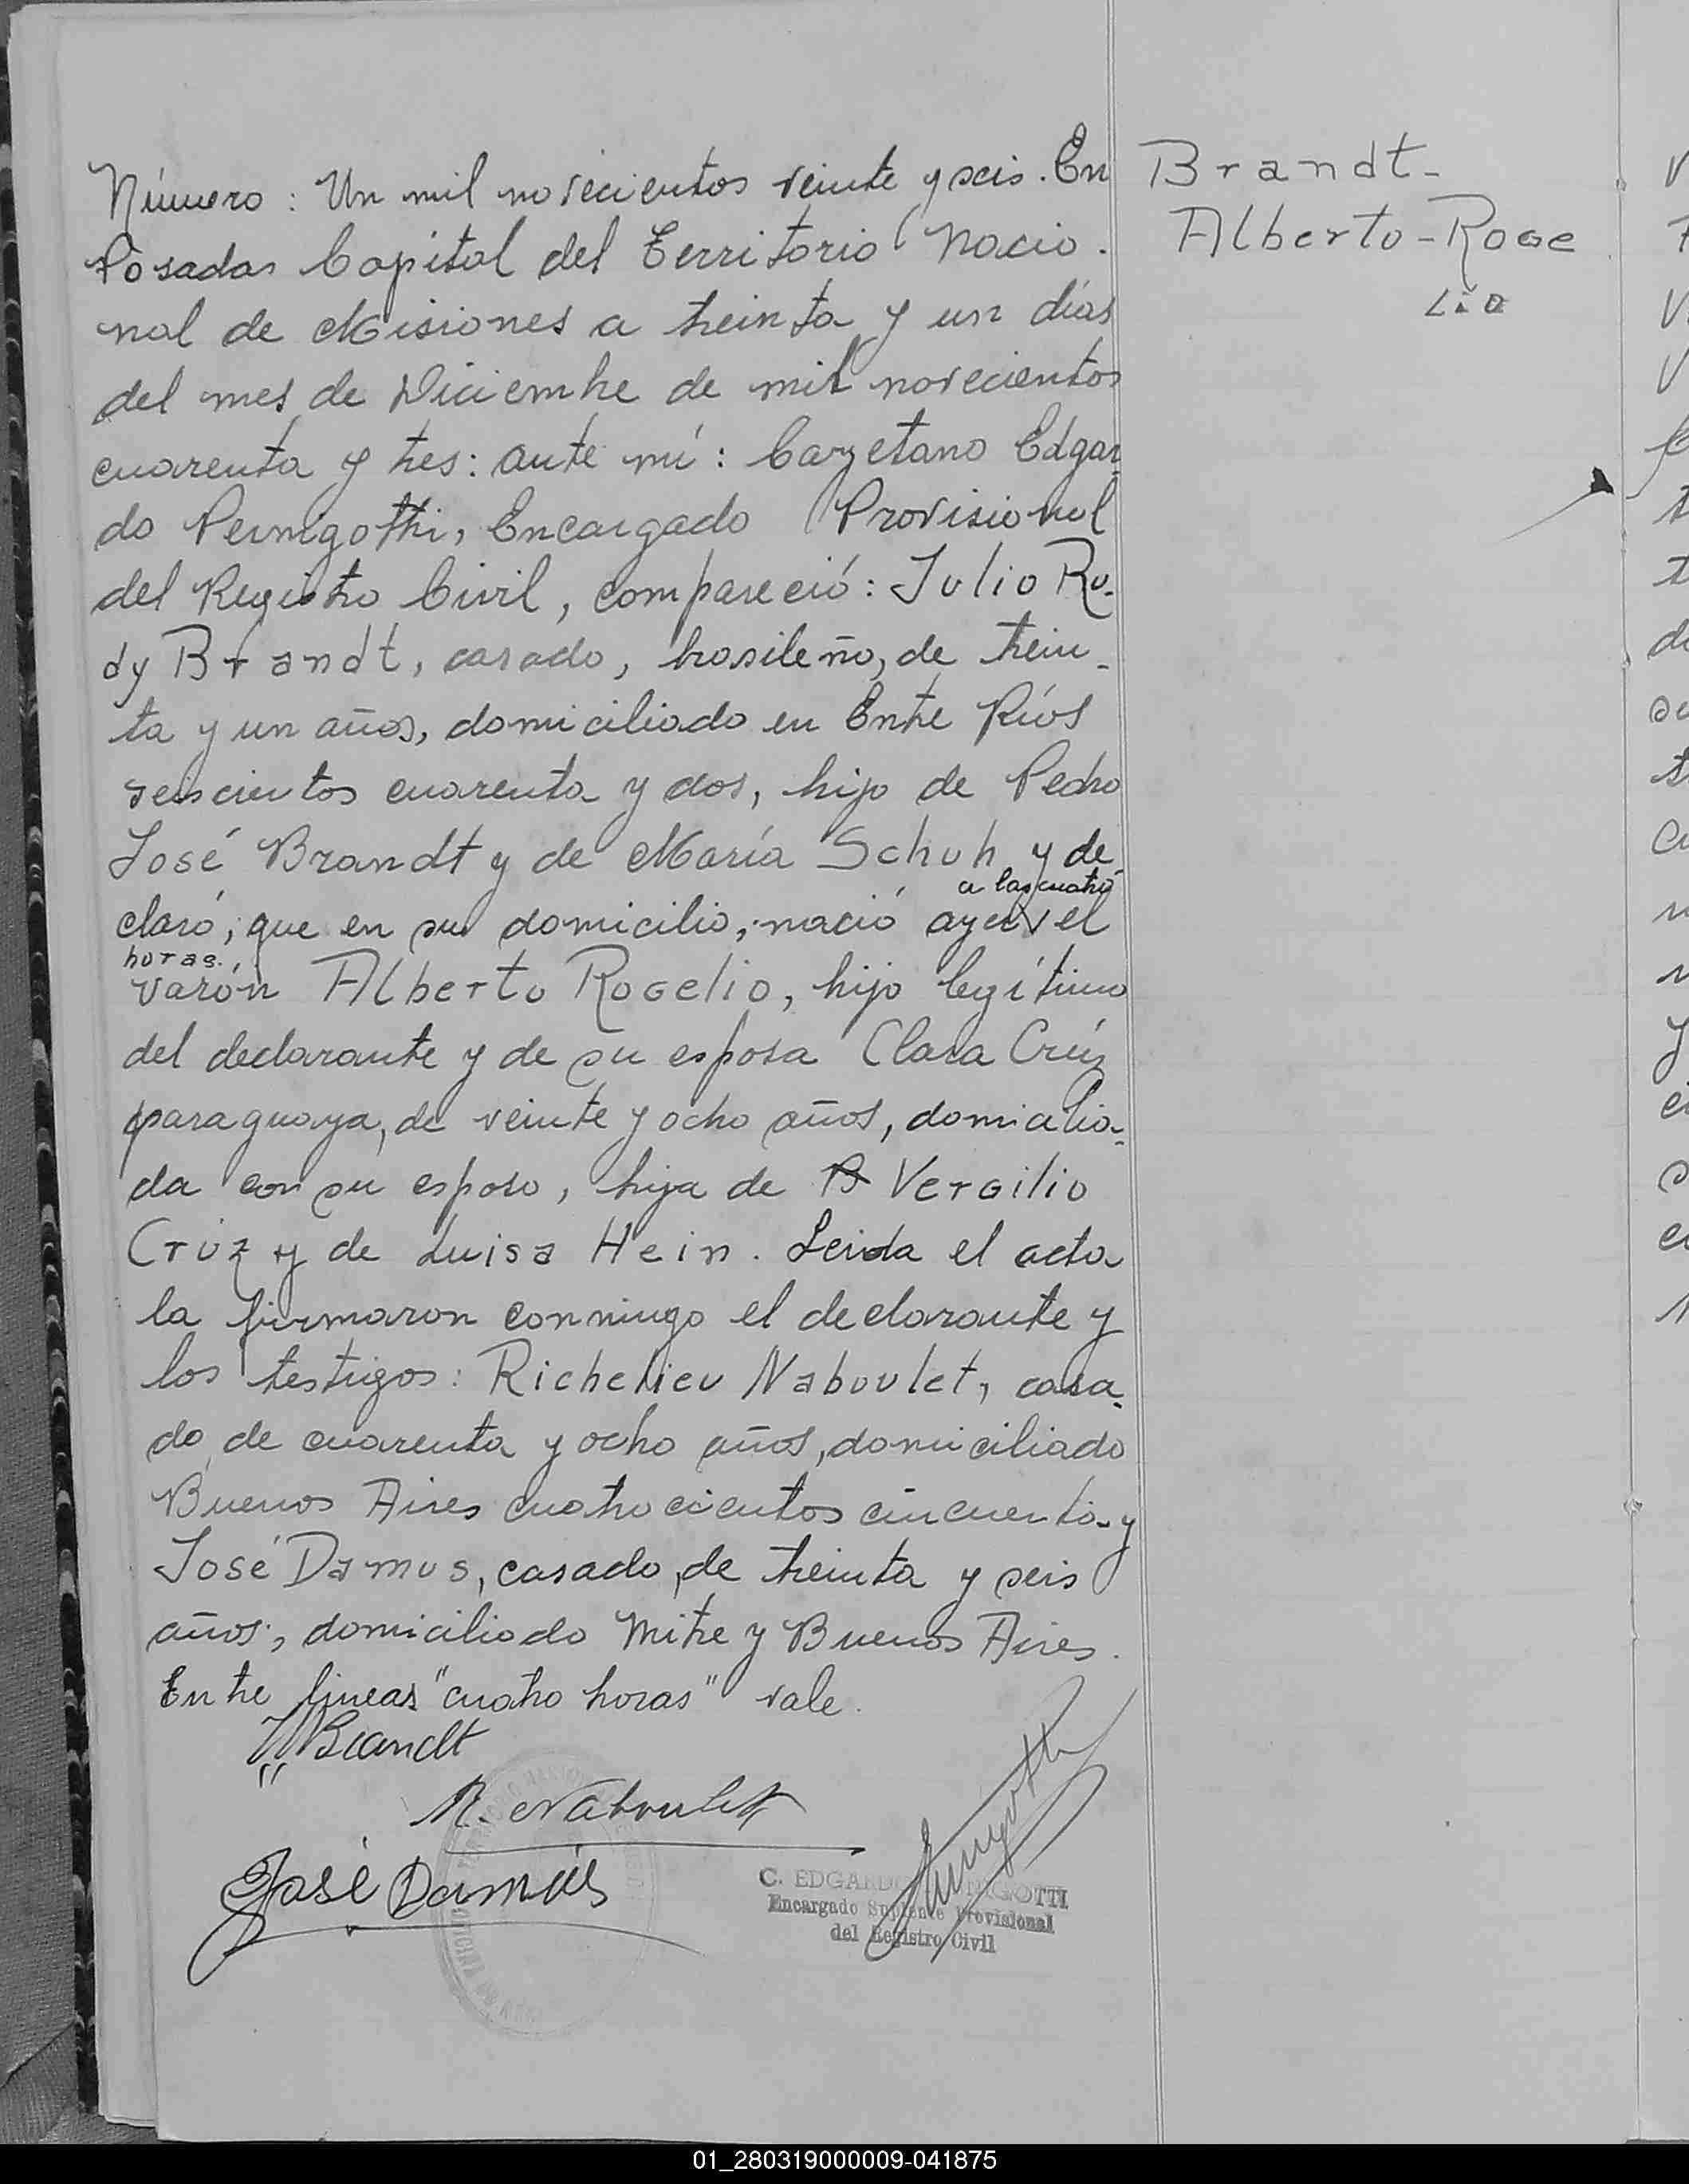 Número: Un mil novecientos veinte y seis. En
Posadas Capital del Territorio Nacio-
nal de Misiones a treinta y un días
del mes de Diciembre de mil novecientos
cuarenta y tres: ante mí: Cayetano Edgar-
do Pernigotti, Encargado Provisional
del Registro Civil, compareció: Julio Ru-
dy Brandt, casado, brasileño, de trein-
ta y un años, domiciliado en Entre Ríos
seiscientos cuarenta y dos, hijo de Pedro
José Brandt y de María Schuh y de-
a las cuatro
claró; que en su domicilio, nació ayer el
horas.
varón Alberto Rogelio, hijo legítimo
del declarante y de su esposa Clara Crúz
paraguaya, de veinte y ocho años, domicilia-
da con su esposo, hija de Vergilio
Crúz y de Luisa Hein. Leída el acta
la firmaron conmigo el declarante y
los testigos: Richelieu Naboulet, casa-
do, de cuarenta y ocho años, domiciliado
Buenos Aires cuatrocientos cincuenta y
José Damus, casado, de treinta y seis
años, domiciliado Mitre y Buenos Aires.
Entre líneas "cuatro horas" vale.
Brandt
R. Naboulet
José Damús
C. EDGARDO PERNIGOTTI
Encargado Suplente Provisional
del Registro Civil
Brandt-
Alberto-Roge
Lio
01_280319000009-041875